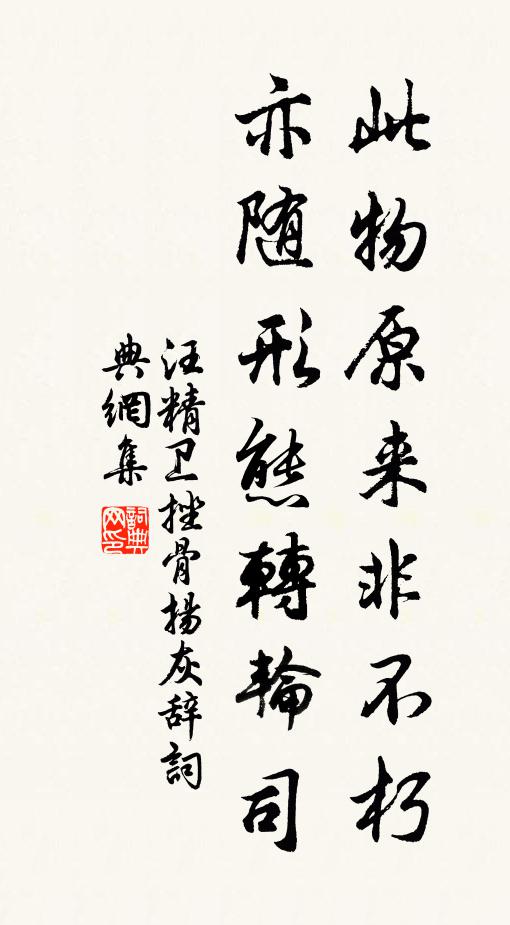 此物原来非不朽
亦随形態轉輪司
汪精卫挫骨揚灰辞詞
典網集
詞典
网印